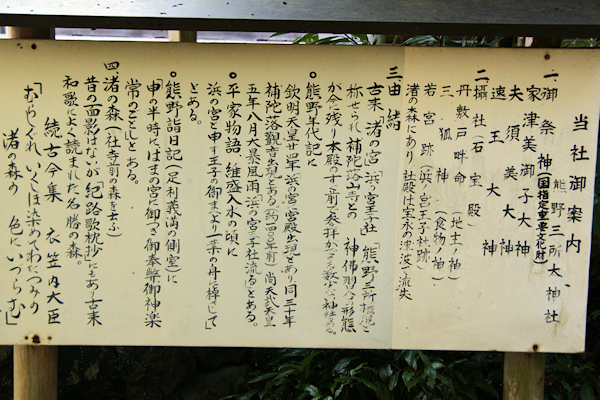 当社御案内
一、御祭神 熊野三所大神社
(国指定重要文化財)
家津美御子大神
夫須美大神
速玉大神
二、摂社(石室殿)
丹敷戸畔命(地主ノ神)
三狐神(食物ノ神)
若宮跡(浜ノ宮王子社跡)
渚の森にあり 社殿は宝永の津波で流失
三、由緒
古来、渚の宮「浜ノ宮王子社」「熊野三所権現」と
称せられ、補陀落山寺と神佛習合の形態
が今に残り本殿の
熊野年代記に
欽明天皇廿四年浜の宮宮殿出現とあり同三十年
補陀落観音出現とある
五年八月大暴風雨浜の宮王子社流るとある。
平家物語 維盛入水の頃に
浜の宮と申す王子の御まへより一葉の舟に棹して
とある。
熊野詣日記(足利義満の側室)に
「申の半時にはまの宮に御つき御奉幣御神楽
常のごとしとある。
四、渚の森(社寺前の森を云ふ)
昔の面影はないが「紀路歌枕抄」にもある古来
和歌によく読まれた名勝の森。
続古今集 衣笠内大臣
「むらしぐれいくしほ染めてわたつみの
渚の森の色にいづらむ」